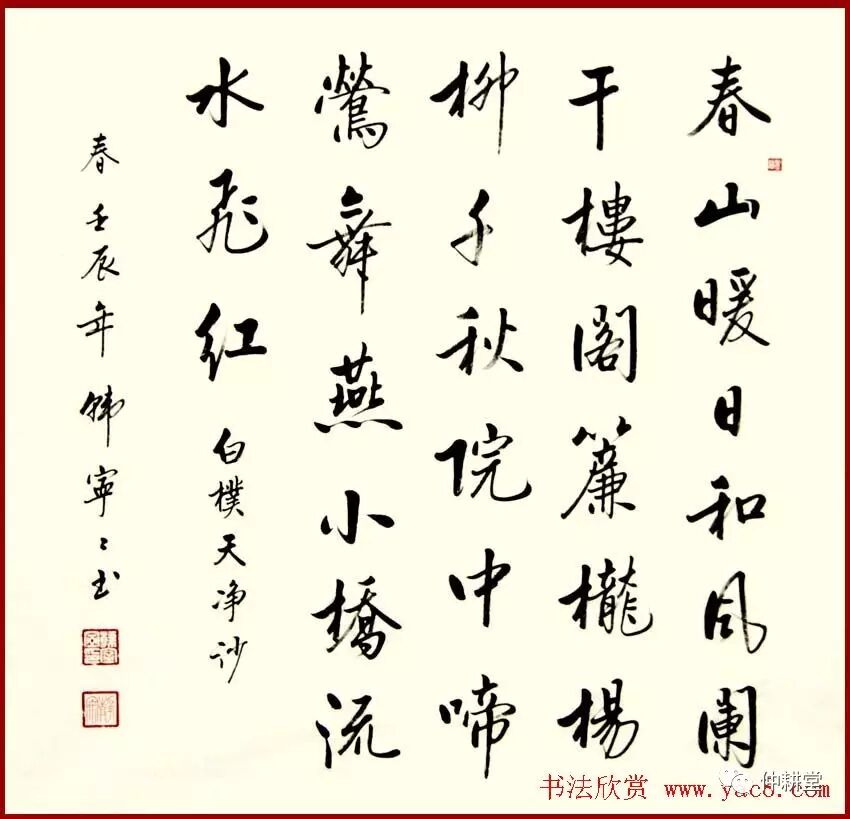 春山暖日和风阑
干樓阁簾櫳楊
柳千秋院中啼
鶯舞燕小橋流
水飛红
白樸天净沙
春壬辰年韩寧寧书
书法欣赏 www.yac8.com
仲耕堂